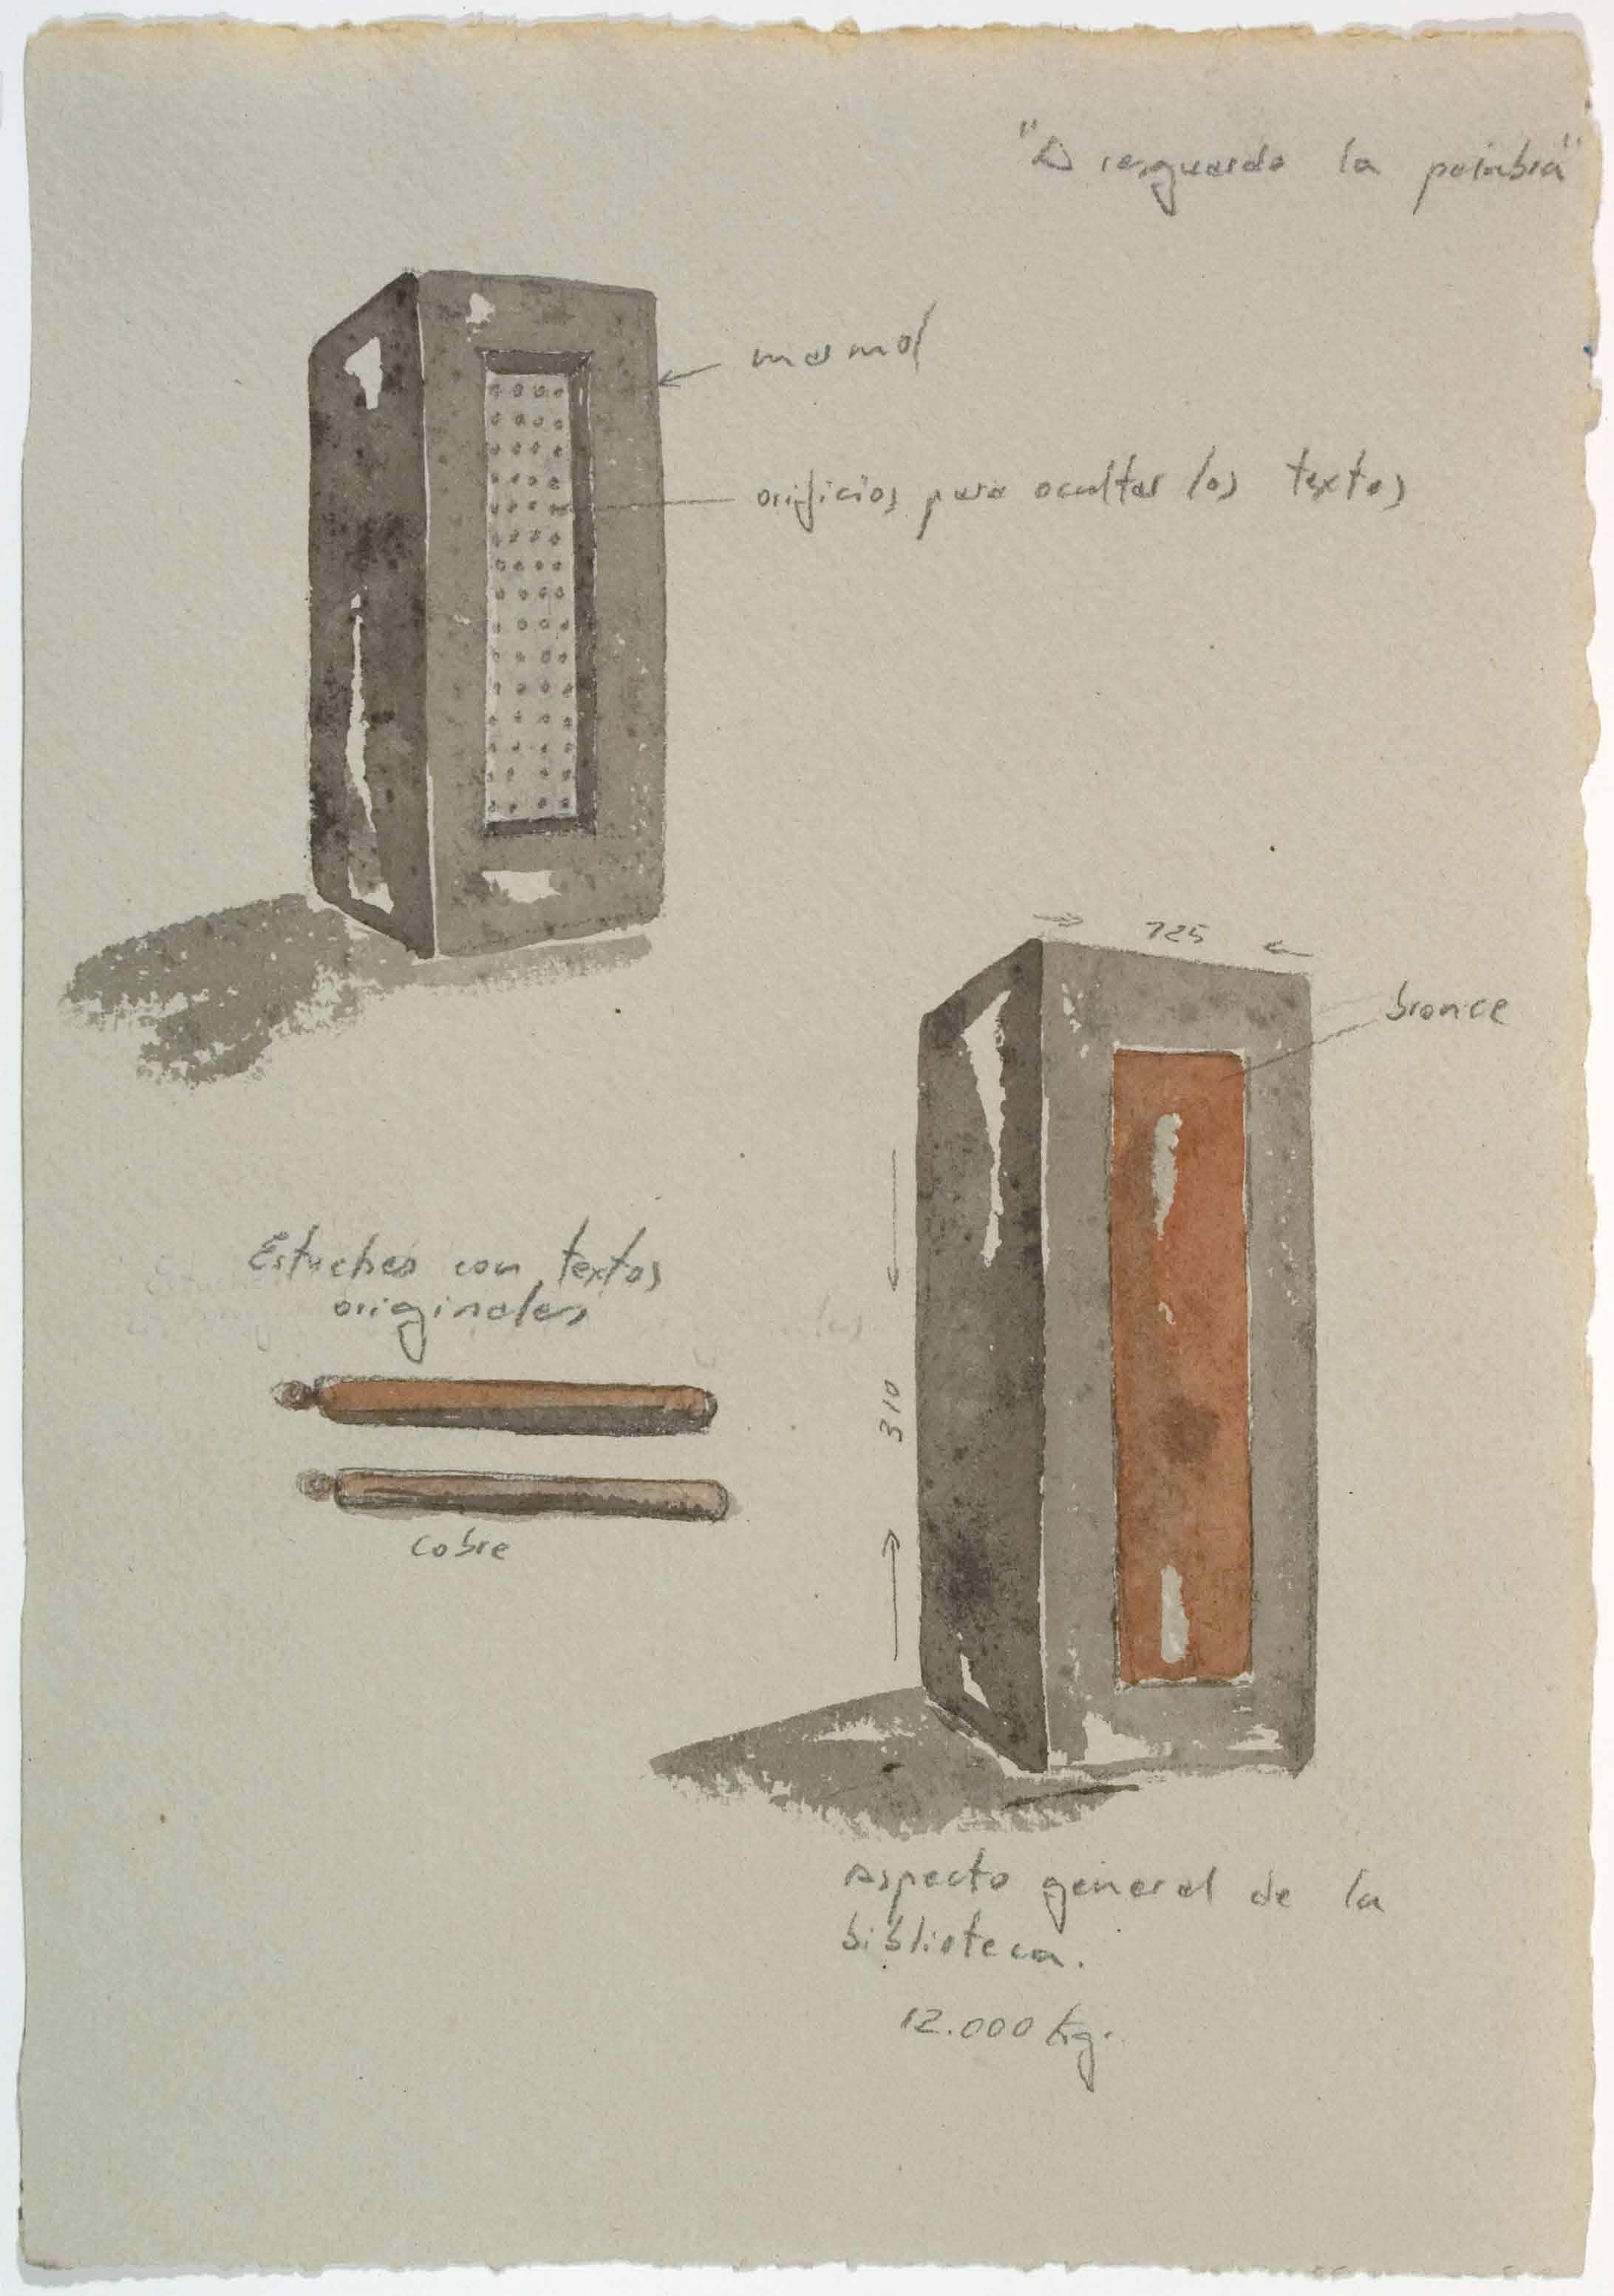 "A resguardo la palabra"
marmol
orificios para ocultar los textos
125
bronce
Estuches con textos
originales
310
cobre
Aspecto general de la
biblioteca.
12.000 kg.